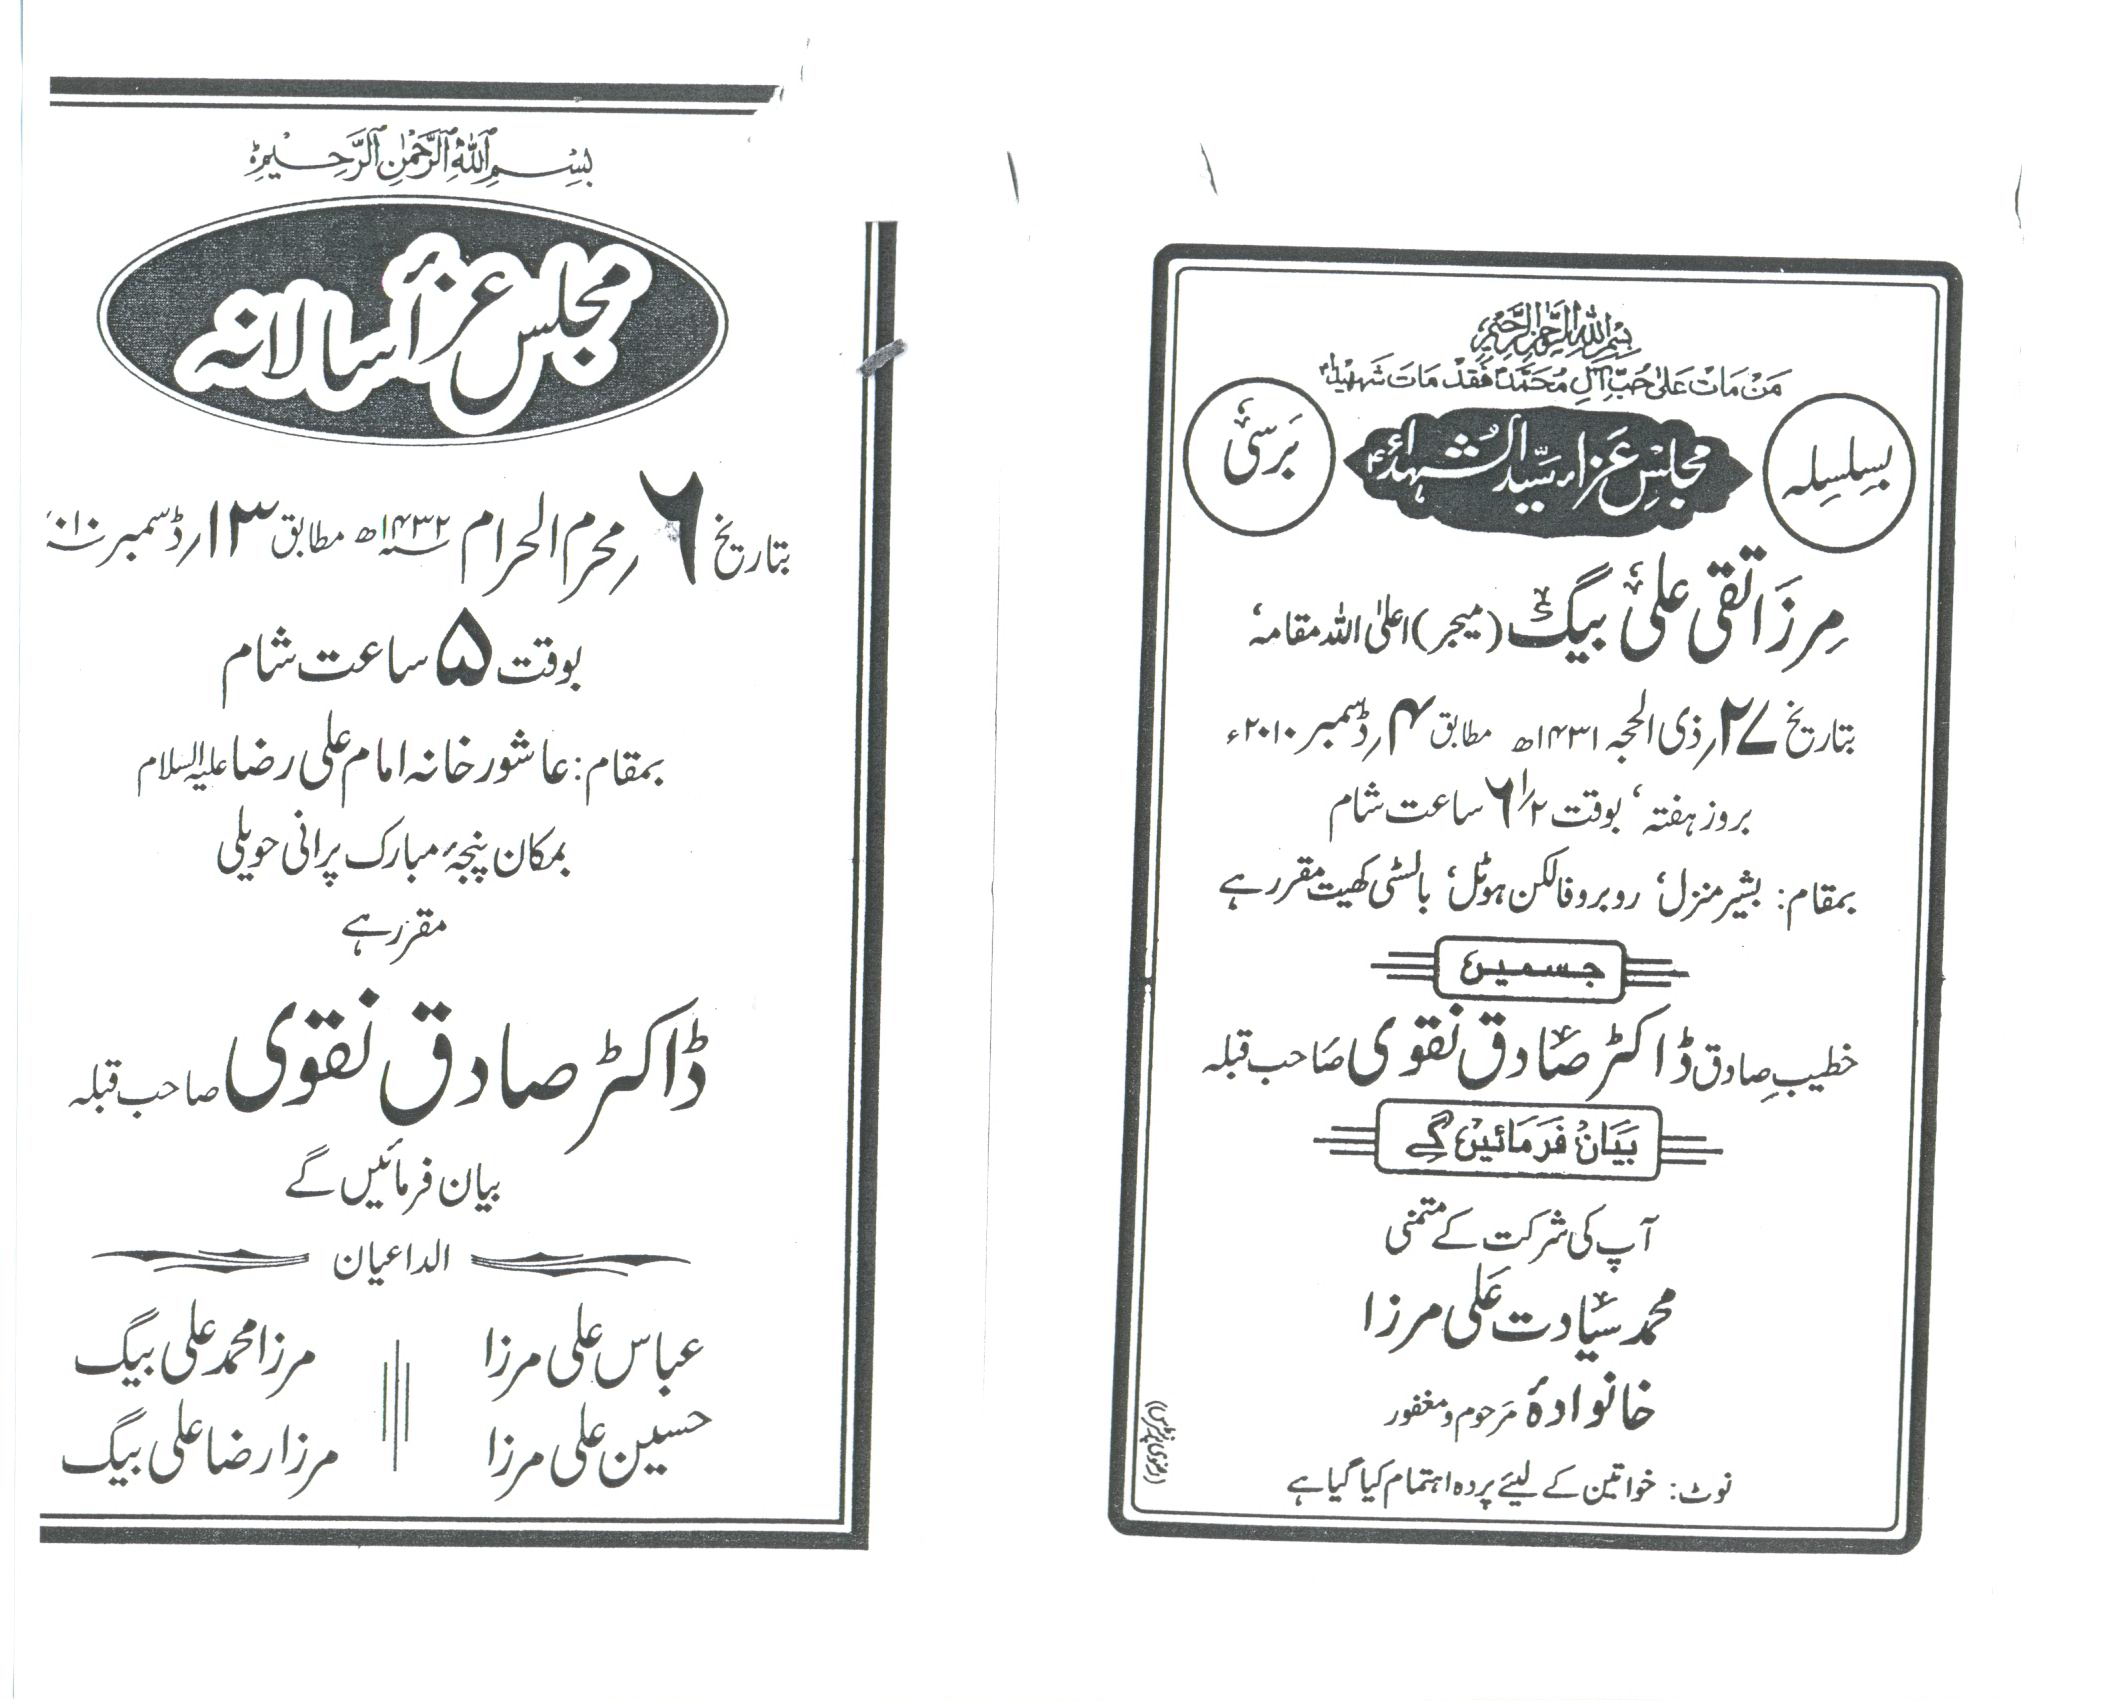 بسم اللہ الرحمن الرحیم
مجلس عزأ سالانہ
بتاریخ ۶؍ محرم الحرام ۱۴۳۲ھ مطابق ۱۳؍ ڈسمبر ۲۰۱۰
بوقت ۵ ساعت شام
بمقام: عاشور خانہ امام علی رضا علیہ السلام
بمکان پنجۂ مبارک پرانی حویلی
مقرر ہے
ڈاکٹر صادق نقوی صاحب قبلہ
بیان فرمائیں گے
الداعیان
عباس علی مرزا مرزا محمد علی بیگ
حسین علی مرزا مرزا رضا علی بیگ
بسم اللہ الرحمن الرحیم
مَنْ مَاتَ عَلیٰ حُبِّ آلِ مُحَمَّدٍ فَقَدْ مَاتَ شَهِیْدا
بسلسلہ مجلسِ عزاء سید الشہداءؑ برسی
مرزا تقی علی بیگ (میجر) اعلیٰ اللہ مقامہ‘
بتاریخ ۲۷؍ ذی الحجہ ۱۴۳۱ھ مطابق ۴؍ ڈسمبر ۲۰۱۰ء
بروز ہفتہ‘ بوقت ۶ ۱/۲ ساعت شام
بمقام: بشیر منزل‘ روبرو فالکن ہوٹل‘ بالسٹی کھیت مقرر ہے
جسمیں
خطیبِ صادق ڈاکٹر صادق نقوی صاحب قبلہ
بیان فرمائیں گے
آپ کی شرکت کے متمنی
محمد سیادت علی مرزا
خانوادۂ مرحوم و مغفور
نوٹ: خواتین کے لیئے پردہ اہتمام کیا گیا ہے